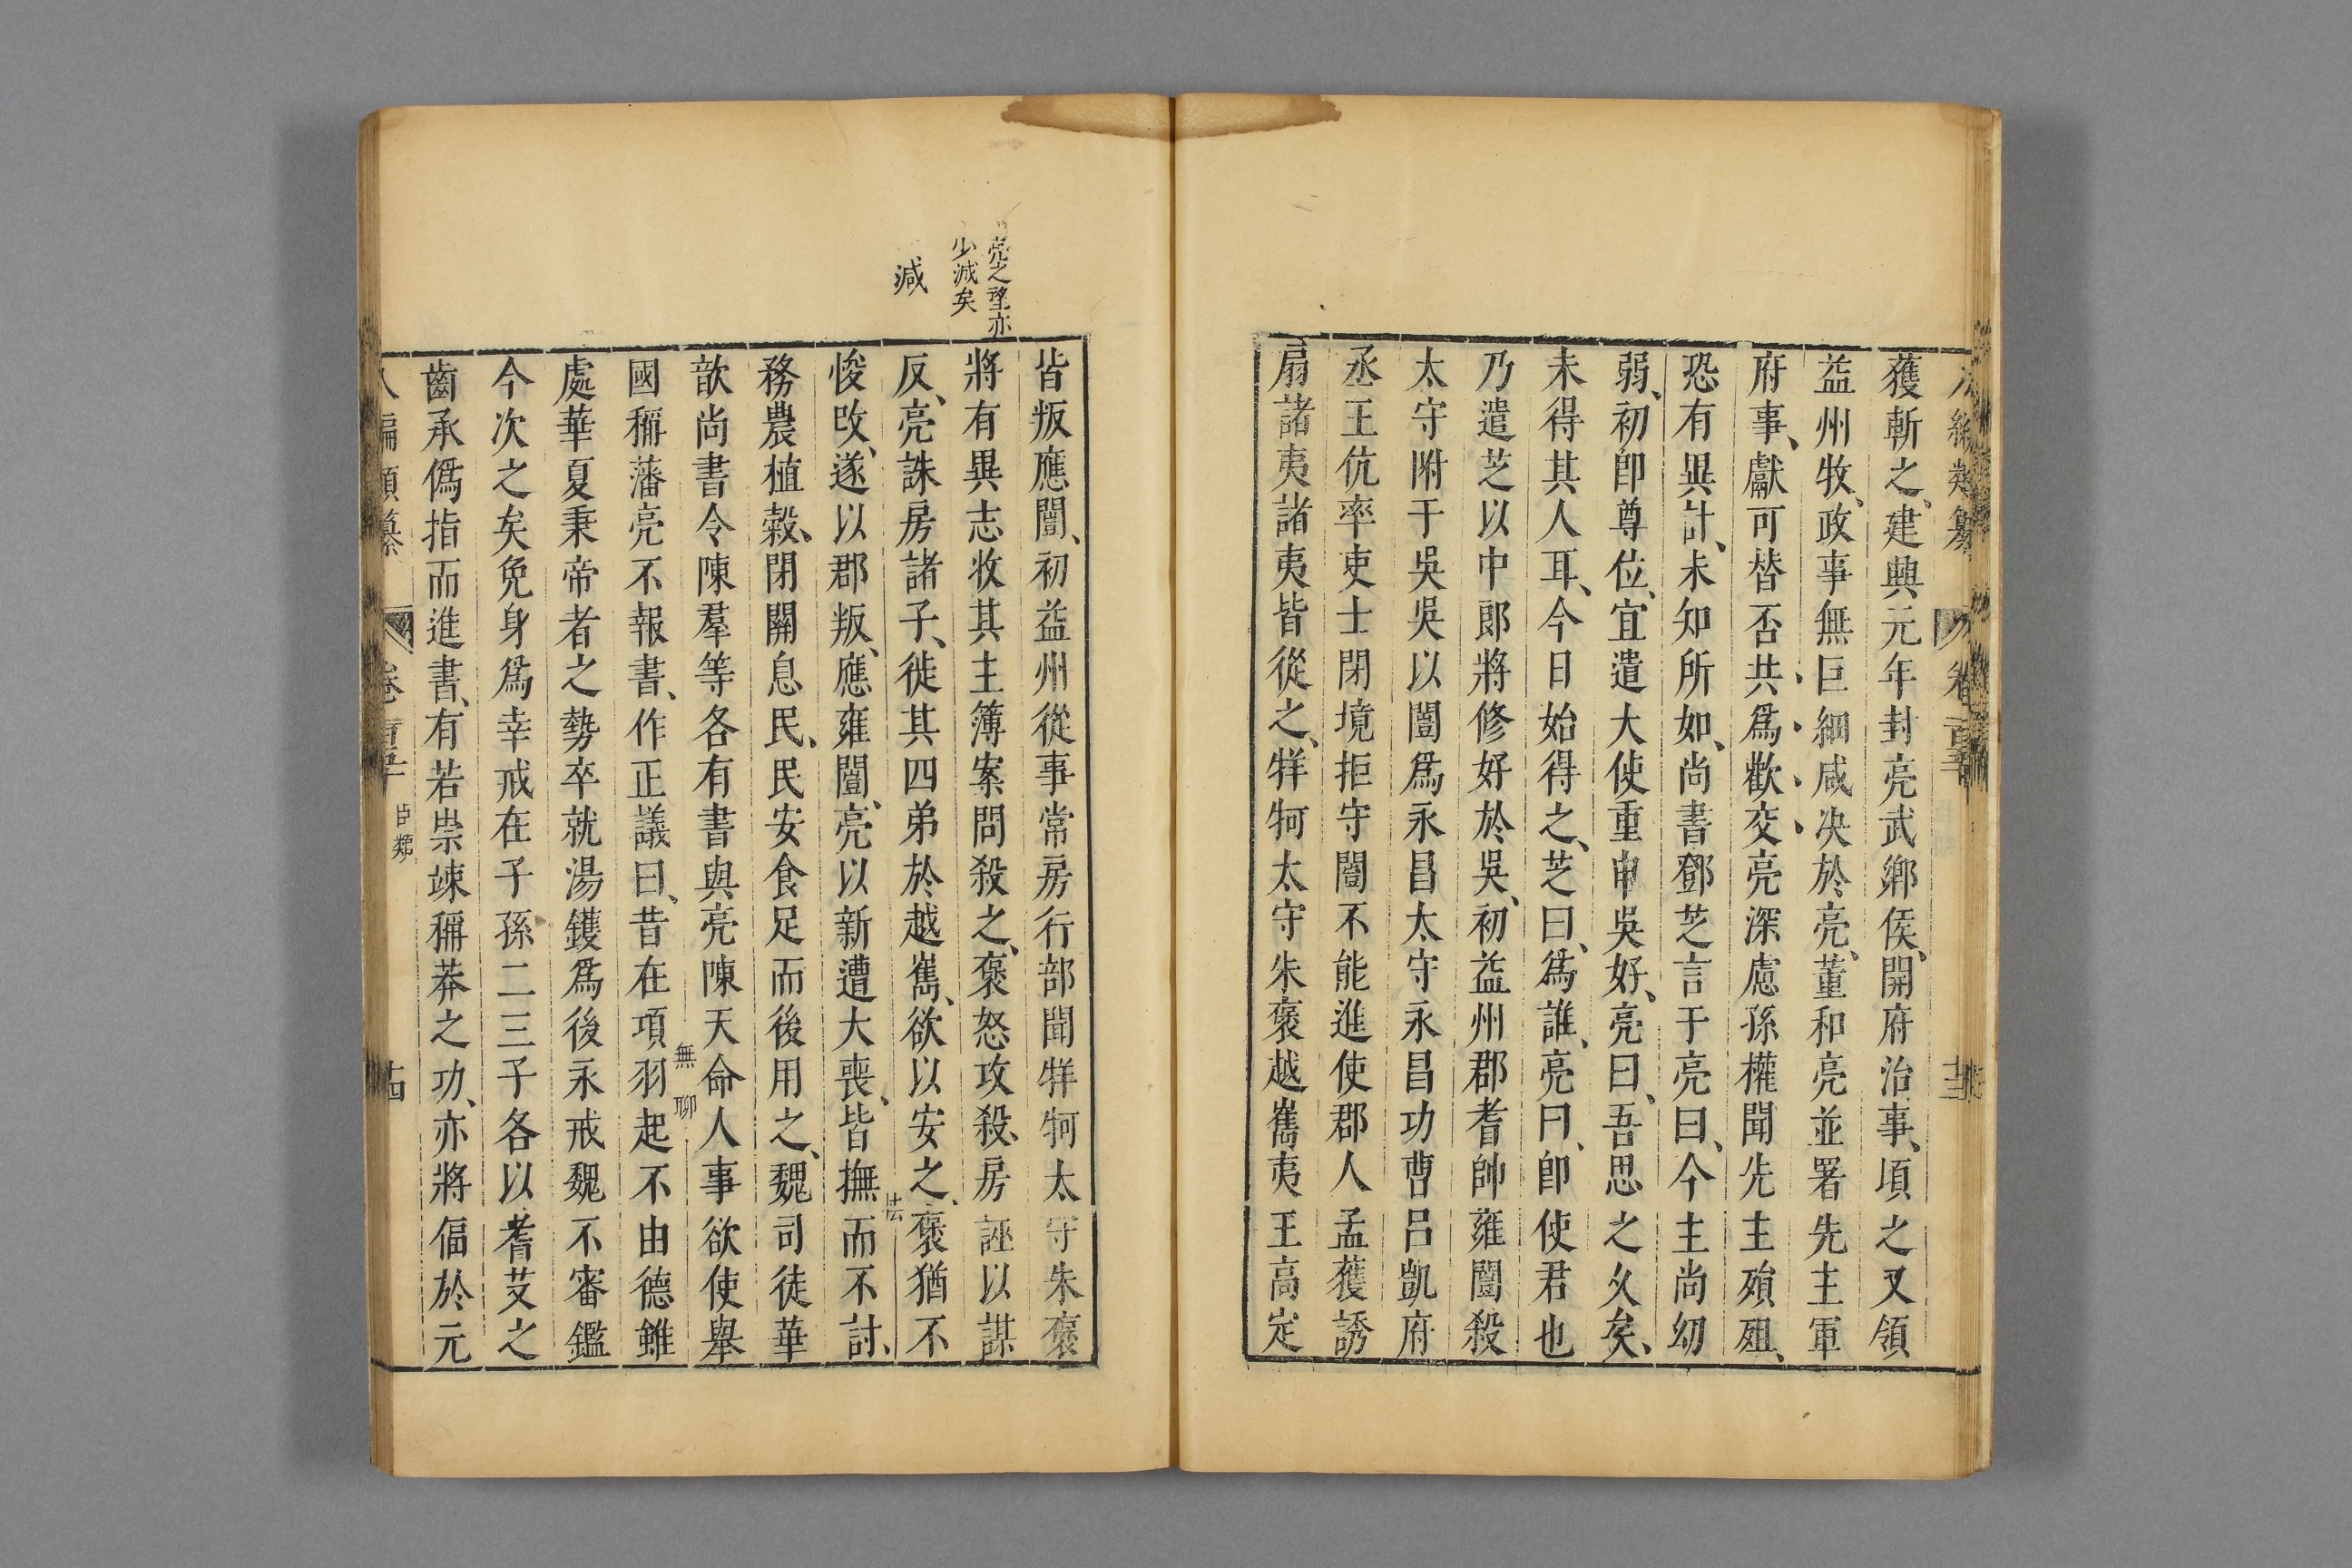 獲斬之、建興元年封亮武鄉侯、開府治事、頃之又領
益州牧、政事無巨細咸決於亮、董和亮並署先主軍
府事、獻可替否共爲歡交亮深慮孫權聞先主殞殂、
恐有異計、未知所如、尚書鄧芝言于亮曰、今主尚幼
弱、初卽尊位、宜遣大使重申吳好、亮曰、吾思之久矣、
未得其人耳、今日始得之、芝曰、爲誰、亮曰、卽使君也
乃遣芝以中郎將修好於吳、初益州郡耆帥雍闓殺
太守附于吳吳以闓爲永昌太守永昌功曹呂凱府
丞王伉率吏士閉境拒守闓不能進使郡人孟獲誘
扇諸夷諸夷皆從之、牂牁太守朱褒越嶲夷王高定
皆叛應闓、初益州從事常房行部聞牂牁太守朱褒
將有異志收其主簿案問殺之、褒怒攻殺、房誣以謀
反、亮誅房諸子、徙其四弟於越嶲、欲以安之、褒猶不
悛改、遂以郡叛、應雍闓、亮以新遭大喪、皆撫而不討、
務農植穀、閉關息民、民安食足而後用之、魏司徒華
歆尚書令陳羣等各有書與亮陳天命人事欲使舉
國稱藩亮不報書、作正議曰、昔在項羽起不由德雖
處華夏秉帝者之勢卒就湯鑊爲後永戒魏不審鑑
今次之矣免身爲幸戒在子孫二三子各以耆艾之
齒承僞指而進書、有若崇竦稱莽之功、亦將偪於元
亮之望亦
少減矣
減
無聊
編類纂 卷 臣類 十四